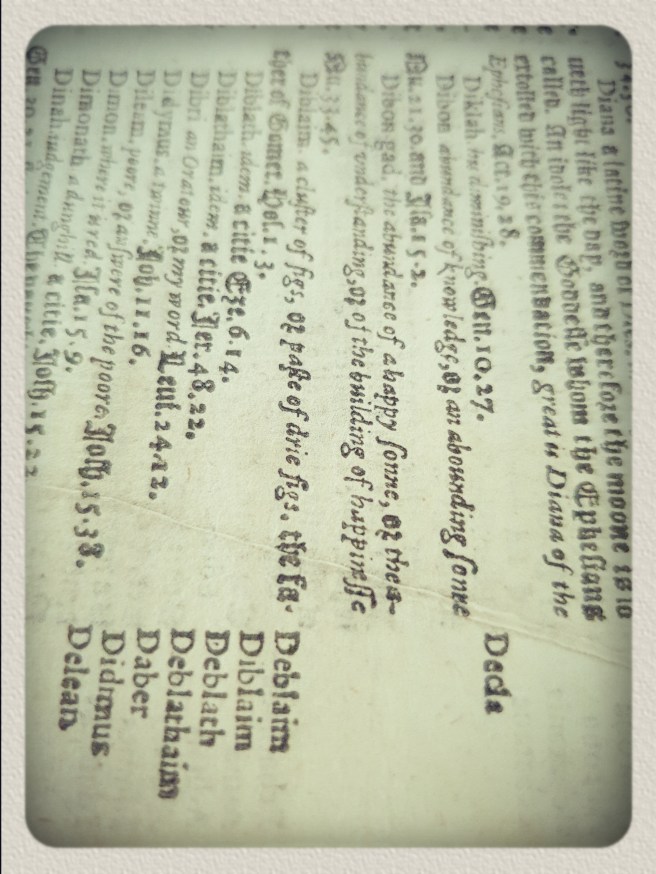 Diana a latine word of
neth light like the day, and therefore the moone is so
called. An idole the Goddesse whom the Ephesians
extolled with their commendacion, great is Diana of the
Ephesians, Act.19.28.
Diklah his diminishing. Gen.10.27. Decla
Dibon abundance of knowledge, or an abounding sonne
Nu.21.30. and Isa.15.2.
Dibon gad, the abundance of a happy sonne, or the a-
bundance of understanding, or of the building of happinesse
Nu.33.45.
Diblaim, a cluster of figs, or paste of drie figs. the fa- Deblaim
ther of Gomer. Hos.1.3. Diblaim
Diblath. idem. a citie Eze.6.14. Deblath
Diblathaim. idem. a citie. Jer.48.22. Deblathaim
Dibri an Oratour, or my word. Leui.24.12. Daber
Didymus. a twinne. Joh.11.16. Didmus
Dileam. poore, or answere of the poore. Josh.15.38. Delean
Dimon. where it is red. Isa.15.9.
Dimonah. a dunghill. a citie. Josh.15.22
Dinah. iudgement.